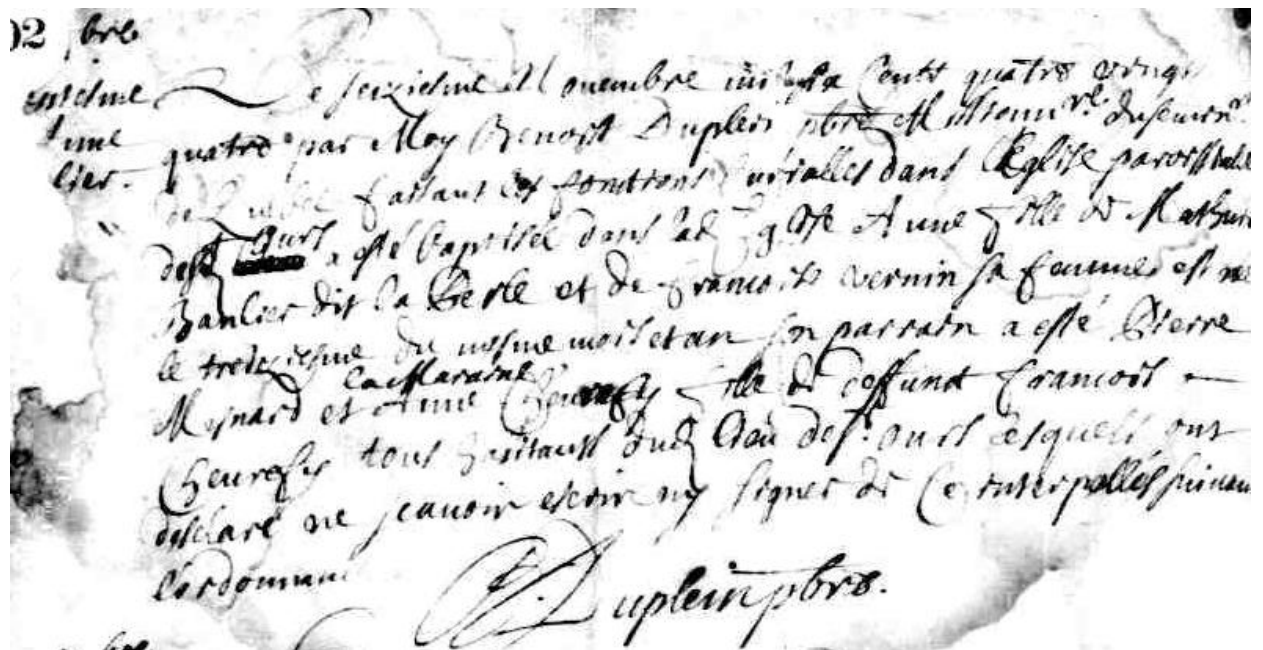 02 bre
tiesme
Anne
lier.
Le seiziesme Novembre mil six Centt quatre vingt
quatre par Moy Benoist Duplein pbre Missionn.re du semin.re
de Quebec faisant les fonctions Curialles dans l'Eglise paroissialle
de St Ours a esté baptisée dans lad Eglise Anne fille de Mathurin
Banlier dit la Perle et de francoise vernin sa femme est née
le treiziesme du mesme mois et an son parrain a esté Pierre
Meynard et la Maraine Anne Cheurefy fille de deffunct francois
Cheurefis tous habitants dud lieu de St. ours lesquels ont
desclaré ne scauoir escrire ny signer de Ce interpellés suivant
l'ordonnance
Duplein pbre.
bre